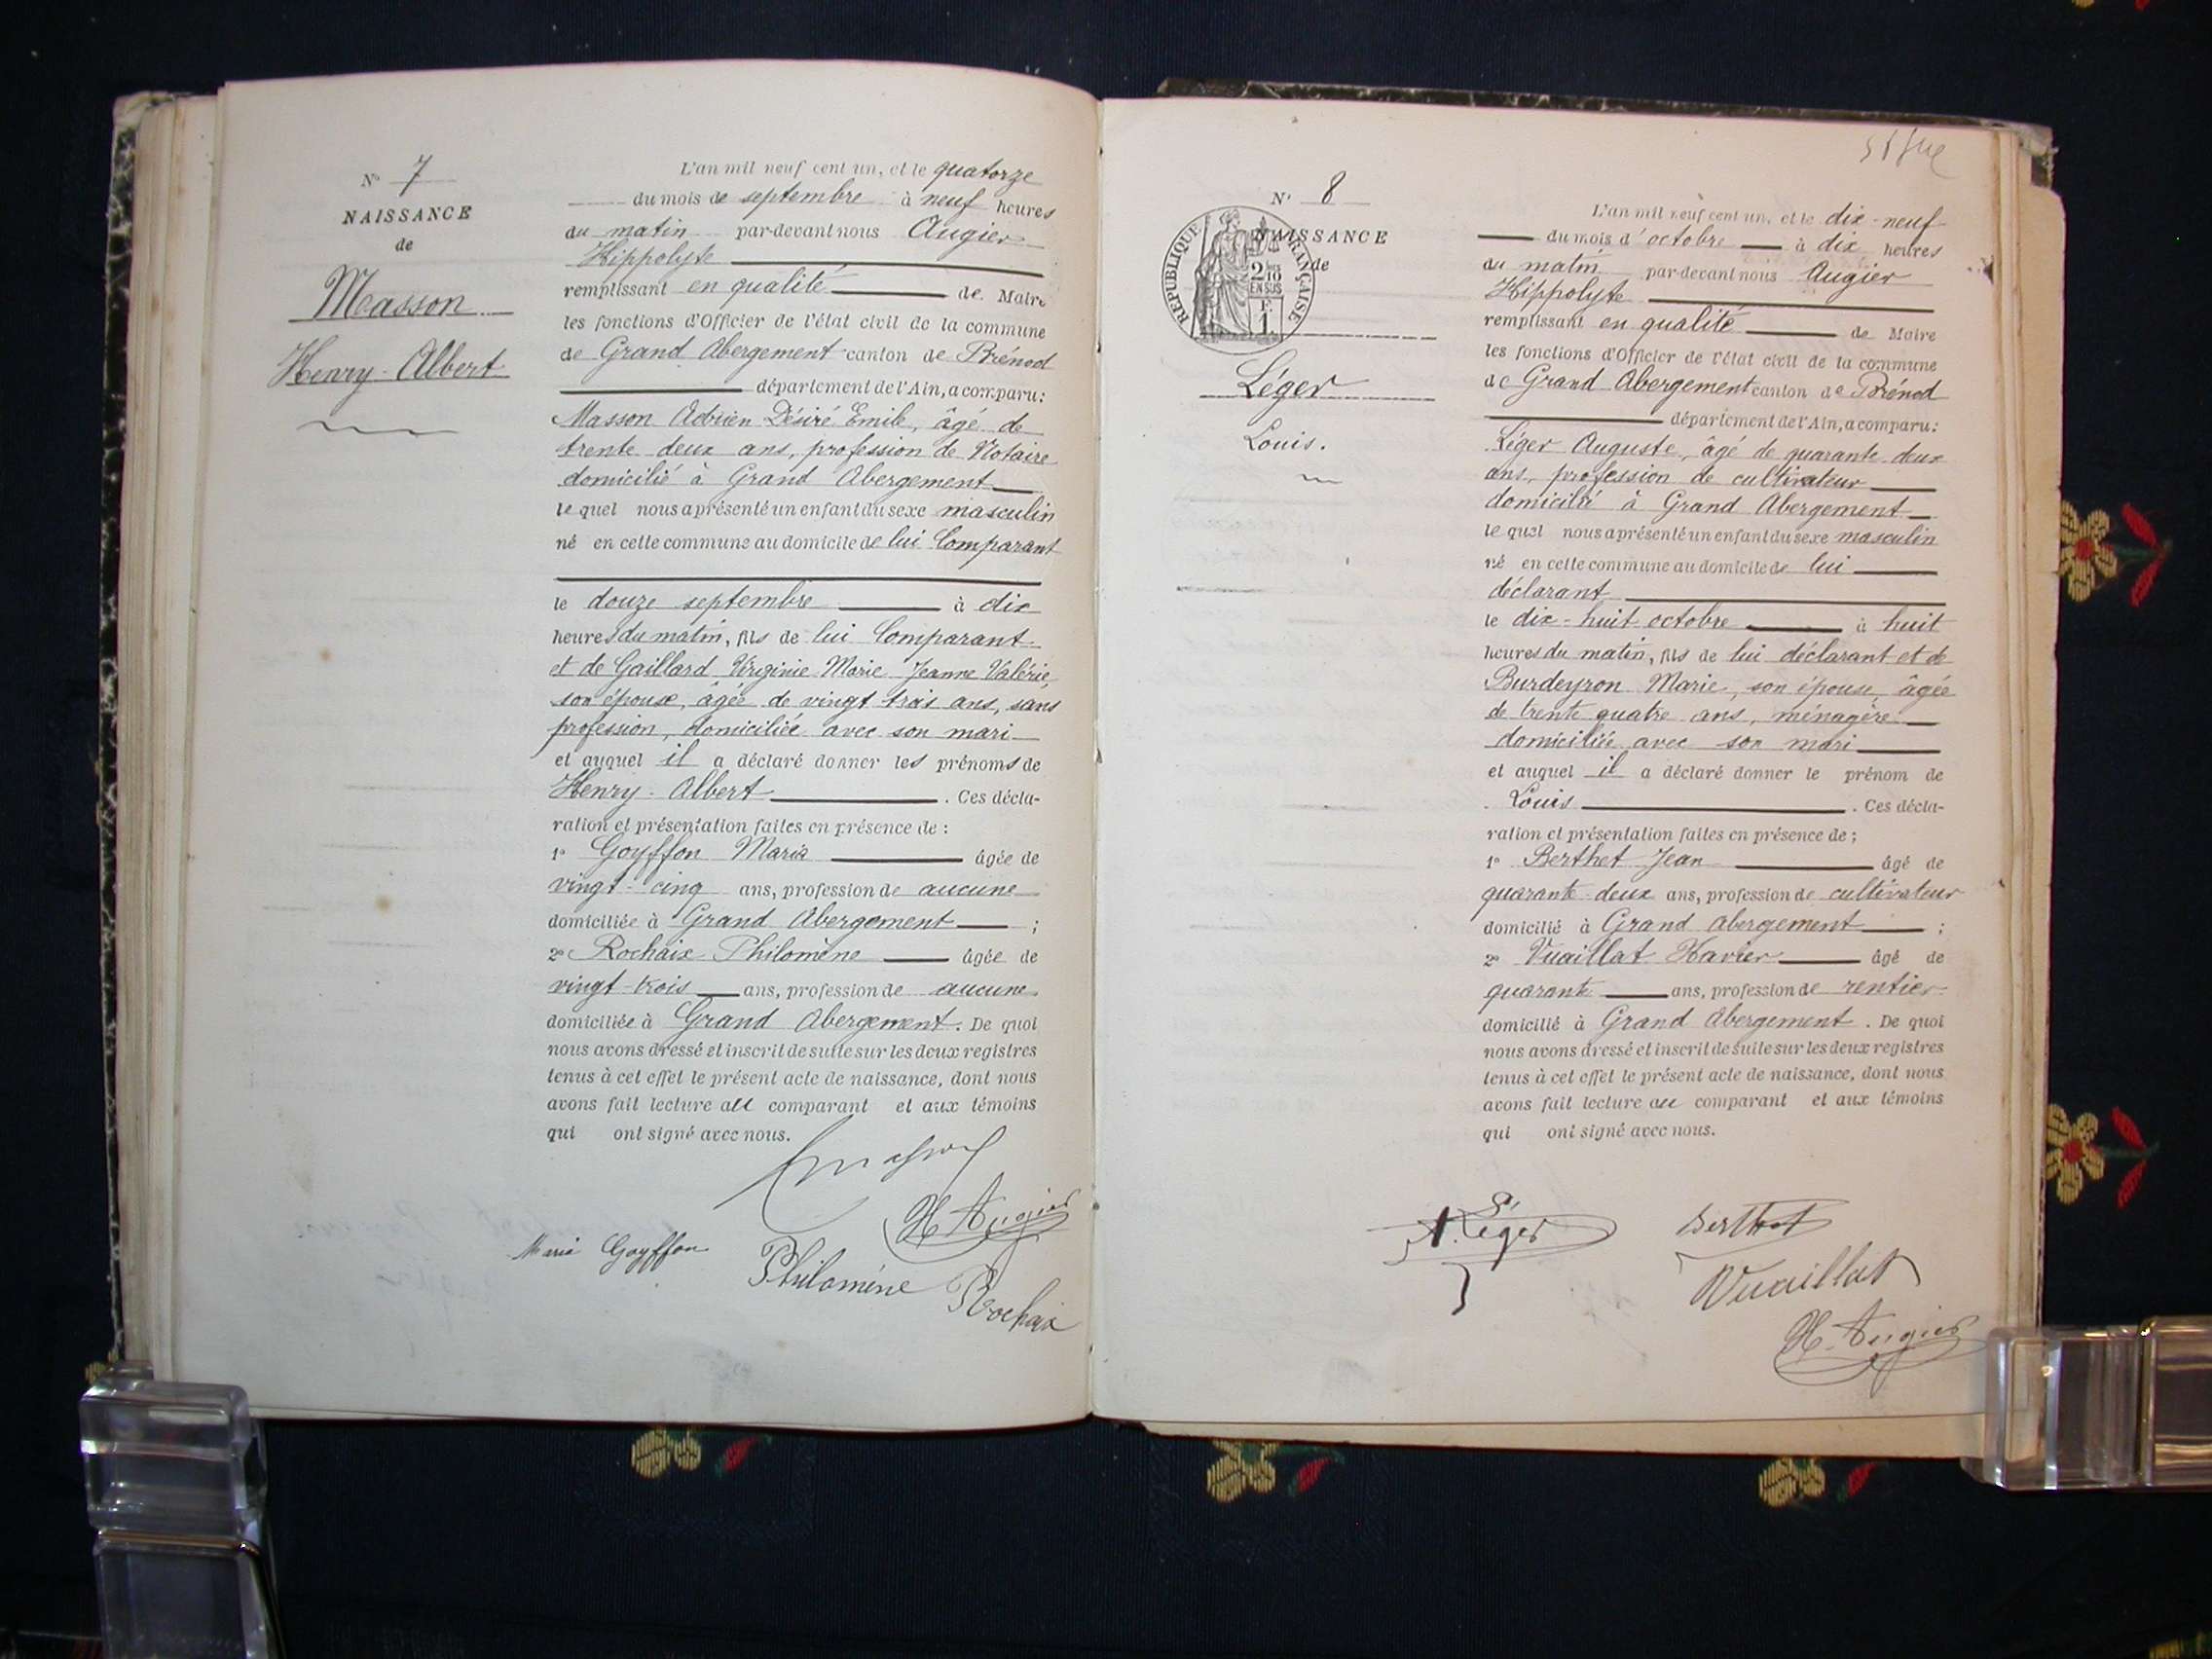 N° 7
NAISSANCE
de
Masson
Henry-Albert
L'an mil neuf cent un, et le quatorze
du mois de septembre à neuf heures
du matin par-devant nous Augier
Hippolyte
remplissant en qualité de Maire
les fonctions d'Officier de l'état civil de la commune
de Grand Abergement canton de Brénod
département de l'Ain, a comparu:
Masson Adrien Désiré Emile, âgé de
trente deux ans, profession de Notaire
domicilié à Grand Abergement
le quel nous a présenté un enfant du sexe masculin
né en cette commune au domicile de lui Comparant
le douze septembre à dix
heures du matin, fils de lui Comparant
et de Gaillard Virginie Marie Jeanne Valérie,
son épouse, âgée de vingt trois ans, sans
profession, domiciliée avec son mari
et auquel il a déclaré donner les prénoms de
Henry-Albert. Ces décla-
ration et présentation faites en présence de :
1° Goyffon Maria âgée de
vingt-cinq ans, profession de aucune
domiciliée à Grand Abergement ;
2° Rochaix Philomène âgée de
vingt-trois ans, profession de aucune
domiciliée à Grand Abergement. De quoi
nous avons dressé et inscrit de suite sur les deux registres
tenus à cet effet le présent acte de naissance, dont nous
avons fait lecture au comparant et aux témoins
qui ont signé avec nous.
H. Augier
Maria Goyffon
Philomène Rochaix
N° 8
NAISSANCE
de
RÉPUBLIQUE FRANÇAISE
2/10
EN SUS
F
1.
Léger
Louis.
L'an mil neuf cent un, et le dix-neuf
du mois d'octobre à dix heures
du matin par-devant nous Augier
Hippolyte
remplissant en qualité de Maire
les fonctions d'Officier de l'état civil de la commune
de Grand Abergement canton de Brénod
département de l'Ain, a comparu:
Léger Auguste, âgé de quarante deux
ans, profession de cultivateur
domicilié à Grand Abergement
le quel nous a présenté un enfant du sexe masculin
né en cette commune au domicile de lui
déclarant
le dix-huit octobre à huit
heures du matin, fils de lui déclarant et de
Burdeyron Marie, son épouse, âgée
de trente quatre ans, ménagère
domiciliée avec son mari
et auquel il a déclaré donner le prénom de
Louis. Ces décla-
ration et présentation faites en présence de ;
1° Berthet Jean âgé de
quarante-deux ans, profession de cultivateur
domicilié à Grand Abergement ;
2° Vuaillat Xavier âgé de
quarante ans, profession de rentier
domicilié à Grand Abergement. De quoi
nous avons dressé et inscrit de suite sur les deux registres
tenus à cet effet le présent acte de naissance, dont nous
avons fait lecture au comparant et aux témoins
qui ont signé avec nous.
A. Léger
Berthet
Vuaillat
H. Augier